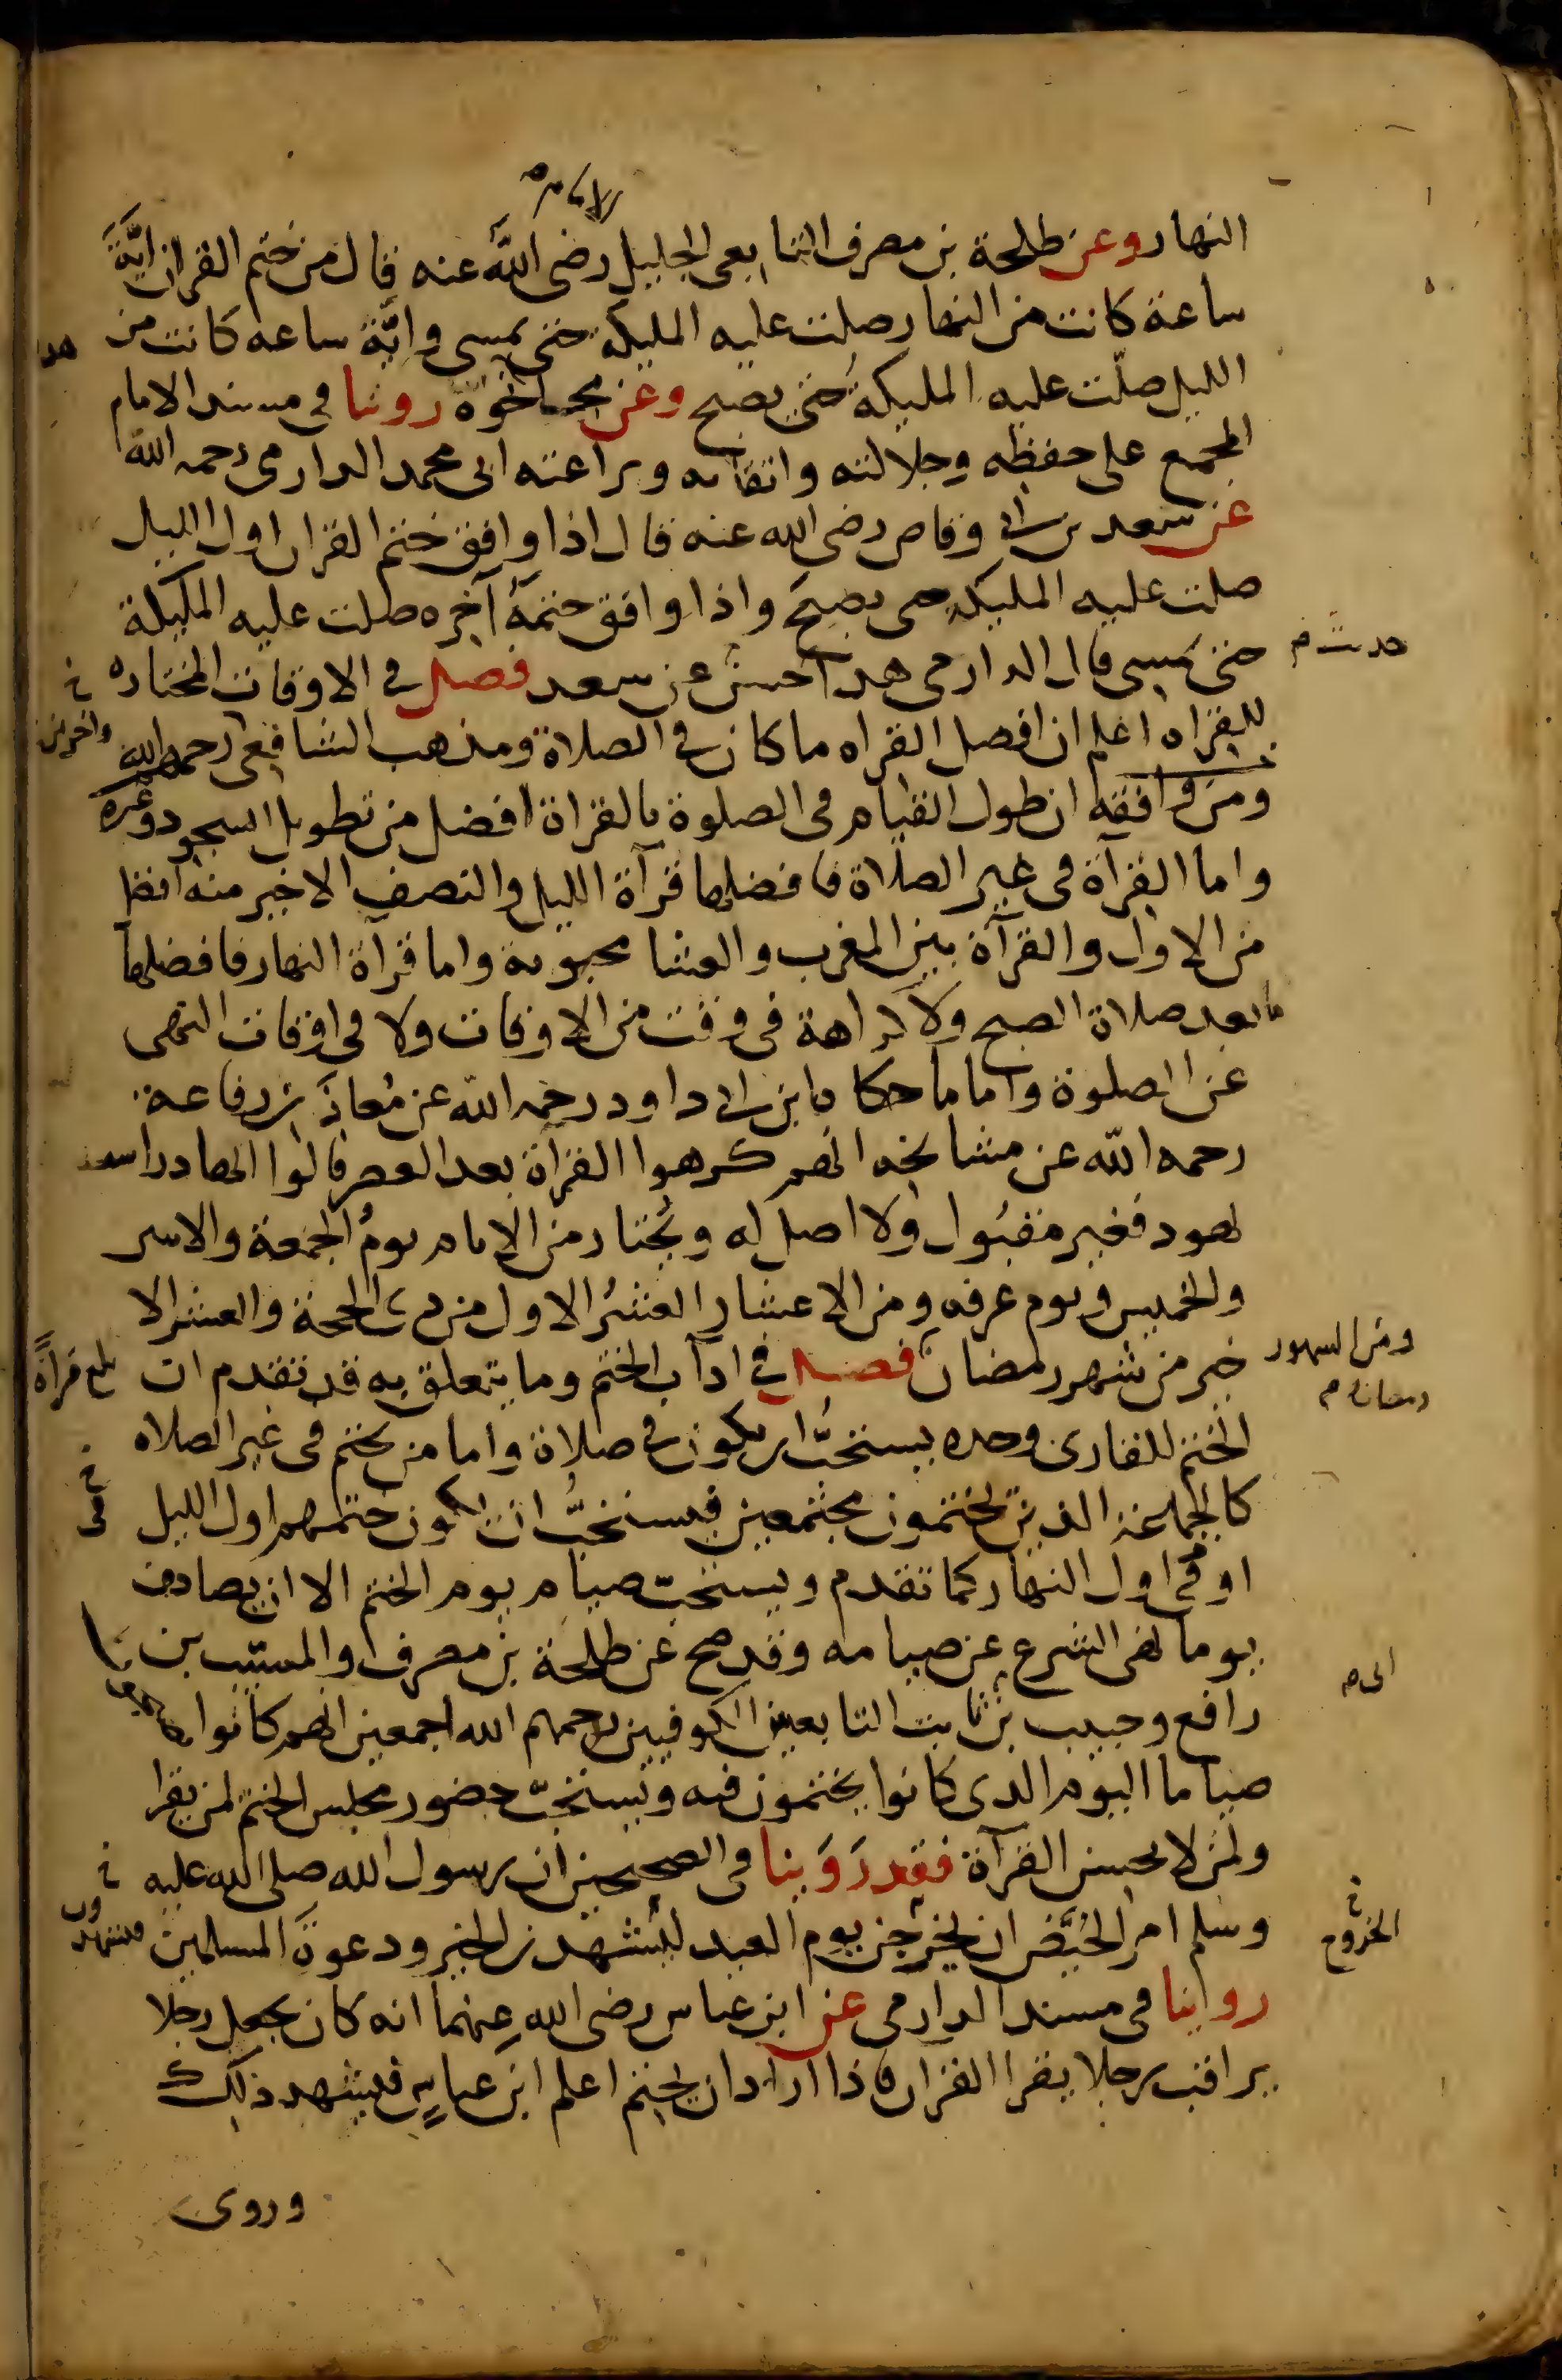 الامام
النهار وعن طلحة بن مصرف التابعي الجليل رضى الله عنه قال من ختم القران ايَّةَ
ساعة كانت من النهار صلت عليه المليكة حتى يمسى وايَّة ساعه كانت من
الليل صلّت عليه المليكةُ حتى يصبح وعن مجاهد نحوه روينا في مسند الامام
المجمع على حفظه وجلالته واتقانه وبراعته ابى محمد الدارمى رحمه الله
عن سعد بن ابى وقاص رضى الله عنه قال اذا وافق ختم القران اول الليل
صلت عليه المليكه حتى يصبح واذا وافق ختمهُ آخره صلت عليه المليكة
حتى يمسى قال الدارمى هذا حسنٌ عن سعد فصل في الاوقات المختاره
للقراه اعلم ان افضل القراه ما كان في الصلاة ومذهب الشافعى رحمه الله
واخرين
ومن وافقه ان طول القيام فى الصلوة بالقراة افضل من تطويل السجود وغيره
واما القرآة فى غير الصلاة فافضلها قرآة الليل والنصف الاخير منه افضل
من الاول والقرآة بين المغرب والعشا محبوبة واما قرآة النهار فافضلها
ما بعد صلاة الصبح ولا كراهة فى وقت من الاوقات ولا فى اوقات النهى
عن الصلوة واما ما حكا ه ابن ابى داود رحمه الله عن مُعاذ بن رفاعة
رحمه الله عن مشايخه انهم كرهوا القرآة بعد العصر قالوا انها دراسة
يهود فغير مقبول ولا اصل له ويُختار من الايام يومُ الجمعة والاثنين
والخميس ويوم عرفه ومن الاعشار العشرُ الاول من ذى الحجة والعشر الا
خير من شهر رمضان فصل في ادآب الختم وما يتعلق به قد تقدم ان
ومن الشهور
رمضان
بلغ قرآةً
الختم للقارى وحده يستحبُّ ان يكون في صلاة واما من يختم فى غير الصلاه
كالجماعة الذين يختمون مجتمعين فيستحبُّ ان يكون ختمهم اول الليل
او في اول النهار كما تقدم ويستحبّ صيام يوم الختم الا ان يصادف
يوما نهى الشرع عن صيامه وقد صح عن طلحة بن مصرف والمسيّب بن
رافع وحبيب بن ثابت التابعين الكوفيين رحمهم الله اجمعين انهم كانوا
ابى
صياما اليوم الذى كانوا يختمون فيه ويستحبّ حضور مجلس الختم لمن يقرا
ولمن لا يحسن القرآة فقد رَوَينا فى الصحيحين ان رسول الله صلى الله عليه
وسلم امر الحُيَّض ان يخرجن يوم العيد ليشهدن الخير ودعوة المسلمين
الخروج
فيشهدن
روينا فى مسند الدارمى عن ابن عباس رضى الله عنهما انه كان يجعل رجلا
يراقب رجلا يقرا القران فاذا اراد ان يختم اعلم ابن عباس فيشهد ذلك
وروى